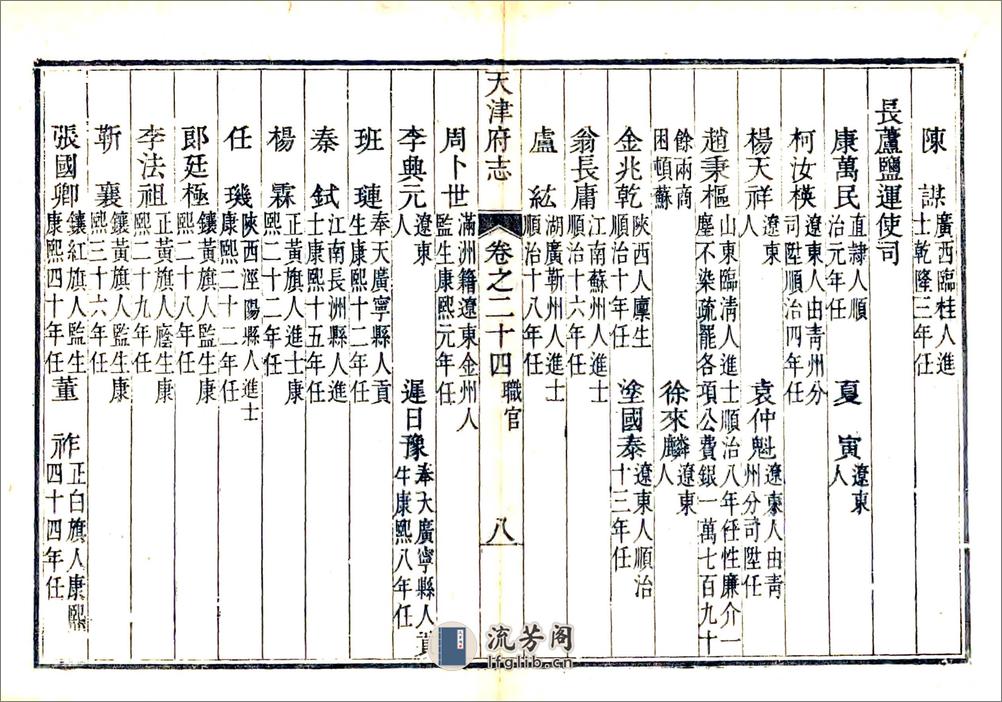 陳　謀廣西臨桂人進士乾隆三年任
長蘆鹽運使司
康萬民直隷人順治元年任　夏　寅遼東人
柯汝楧遼東人由青州分司陞順治四年任
楊天祥遼東人　袁仲魁遼東人由青州分司陞任
趙秉樞山東臨清人進士順治八年任性廉介一塵不染疏罷各項公費銀一萬七百九十
餘兩商困頓蘇　徐來麟遼東人
金兆乾陝西人廩生順治十年任　塗國泰遼東人順治十三年任
翁長庸江南蘇州人進士順治十六年任
盧　紘湖廣蘄州人進士順治十八年任
周卜世滿洲籍遼東金州人監生康熙元年任
天津府志　卷之二十四　職官　八
李興元遼東人　遲日豫奉天廣寧縣人貢生康熙八年任
班　璉奉天廣寧縣人貢生康熙十二年任
秦　鉽江南長洲縣人進士康熙十五年任
楊　霖正黃旗人進士康熙二十二年任
任　璣陝西涇陽縣人進士康熙二十二年任
郎廷極鑲黃旗人監生康熙二十八年任
李法祖正黃旗人廕生康熙二十九年任
靳　襄鑲黃旗人監生康熙三十六年任
張國卿鑲紅旗人監生康熙四十年任　董　祚正白旗人康熙四十四年任
流芳阁
lfglib.cn